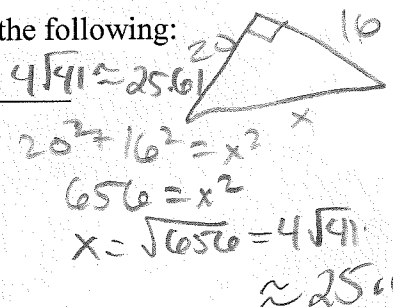 the following:
20 16
4√41 ≈ 25.61
x
20² + 16² = x²
656 = x²
x = √656 = 4√41
≈ 25.